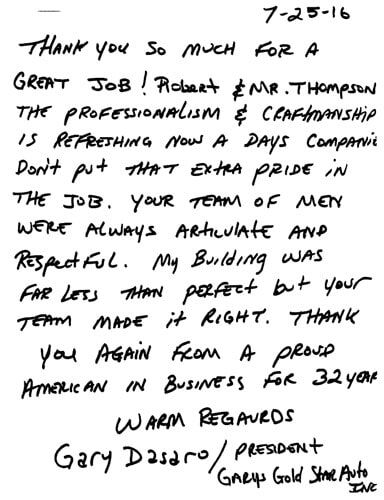 7-25-16
THANK YOU SO MUCH FOR A
GREAT JOB! Robert & MR. THOMPSON
THE PROFESSIONALISM & CRAFTMANSHIP
IS REFRESHING NOW A DAYS COMPANIE
DON'T PUT THAT EXTRA PRIDE IN
THE JOB. YOUR TEAM OF MEN
WERE ALWAYS ARTICULATE AND
RESPECTFUL. My Building WAS
FAR LESS THAN PERFECT but YOUR
TEAM MADE it RIGHT. THANK
YOU AGAIN FROM A PROUD
AMERICAN IN BUSINESS FOR 32 YEAR
WARM REGAURDS
Gary Dasaro / PRESIDENT
GARYS Gold Star Auto
INC